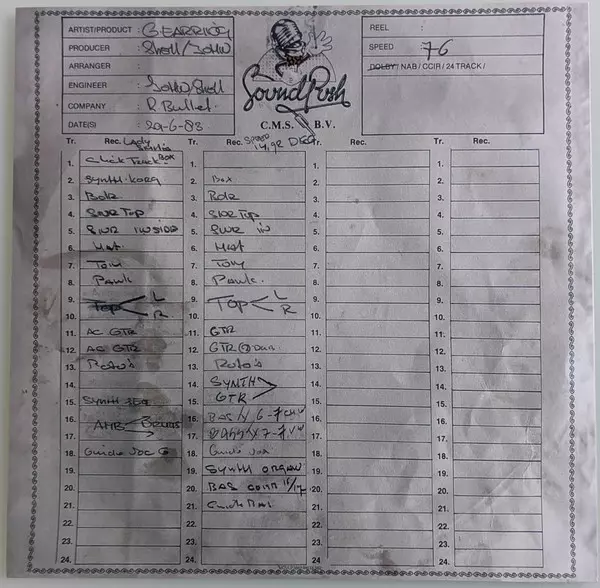 ARTIST/PRODUCT : G. EARRING
PRODUCER : Shell/John
ARRANGER :
ENGINEER : John/Shell
COMPANY : R Bullet.
DATE(S) : 29-6-83
SoundPush
C.M.S. B.V.
REEL :
SPEED : 76
DOLBY / NAB / CCIR / 24 TRACK /
Tr. Rec. Lady
1. Click Track Box
2. Synth. Korg
3. Bdr
4. SNR TOP
5. SNR INSIDE
6. Hat
7. Tom
8. Pauk
9. Top L
10. R
11. AC GTR
12. AC GTR
13. Roto's
14.
15. SYNTH
16. AMB
17.
18. Guide Voc
19.
20.
21.
22.
23.
24.
Tr. Rec. SPEED 14,92
1.
2. Box
3. Bdr
4. SNR TOP
5. SNR IN
6. Hat
7. Tom
8. Pauk.
9. TOP L
10. R
11. GTR
12. GTR
13. Roto's
14. SYNTH
15. GTR
16. BAS
17.
18. Guide Vox
19. SYNTH ORGAN
20. BAS COMP 16/17
21.
22.
23.
24.
Tr. Rec.
1.
2.
3.
4.
5.
6.
7.
8.
9.
10.
11.
12.
13.
14.
15.
16.
17.
18.
19.
20.
21.
22.
23.
24.
Tr. Rec.
1.
2.
3.
4.
5.
6.
7.
8.
9.
10.
11.
12.
13.
14.
15.
16.
17.
18.
19.
20.
21.
22.
23.
24.